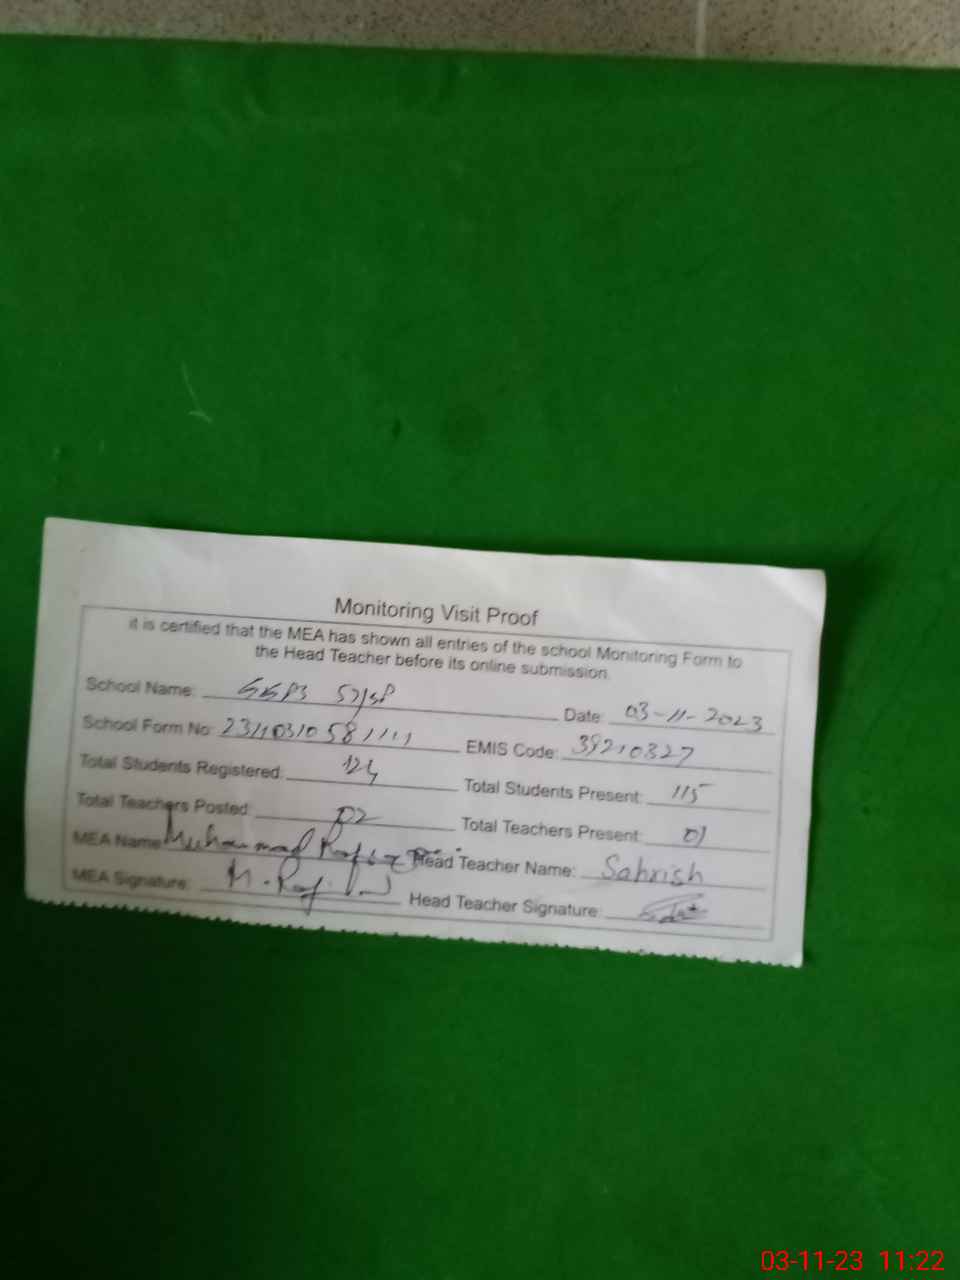 Monitoring Visit Proof
it is certified that the MEA has shown all entries of the school Monitoring Form to
the Head Teacher before its online submission.
School Name: GGPS 57/SP Date: 03-11-2023
School Form No: EMIS Code: 39210327
Total Students Registered: 124 Total Students Present: 115
Total Teachers Posted: 02 Total Teachers Present: 01
MEA Name: Muhammad Head Teacher Name: Sahrish
MEA Signature: Head Teacher Signature:
03-11-23 11:22